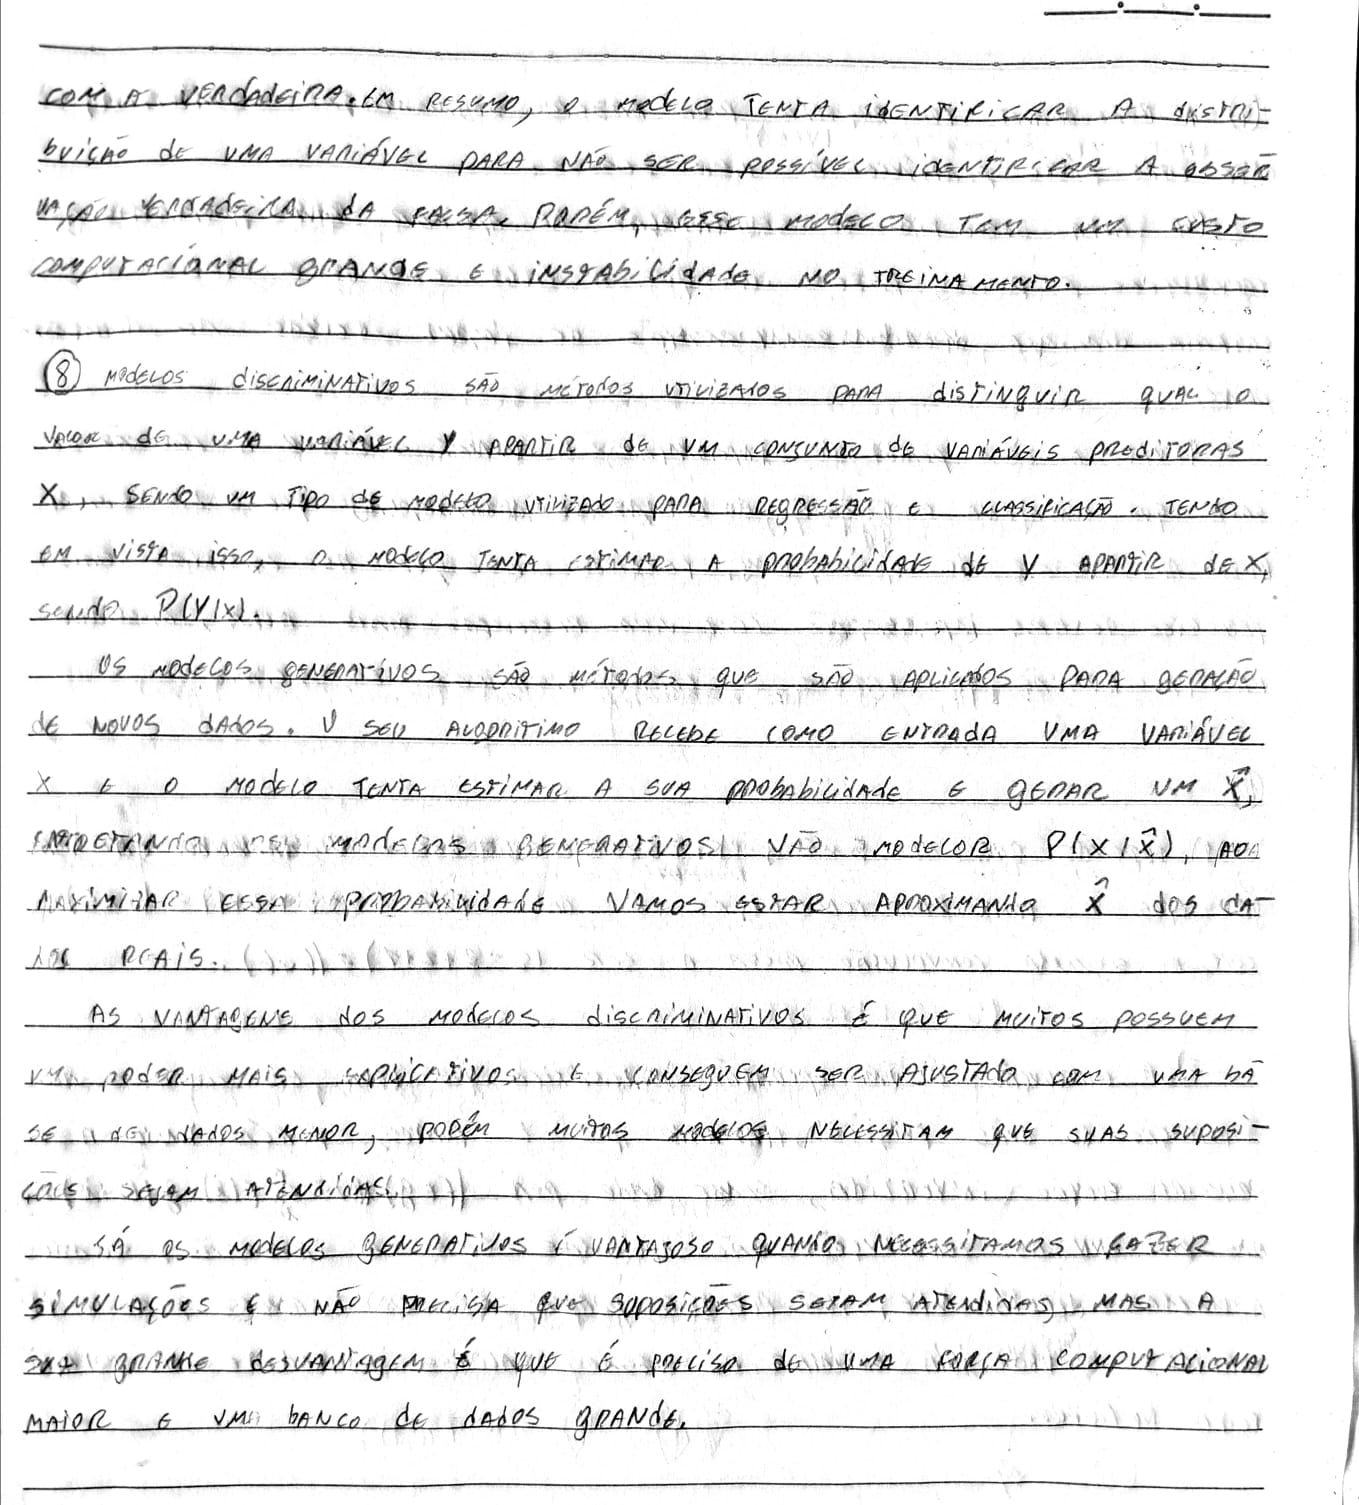 COM A VERDADEIRA. EM RESUMO, O MODELO TENTA IDENTIFICAR A DISTRI-
BUIÇÃO DE UMA VARIÁVEL PARA NÃO SER POSSÍVEL IDENTIFICAR A OBSER
VAÇÃO VERDADEIRA DA FALSA. PORÉM, ESSE MODELO TEM UM CUSTO
COMPUTACIONAL GRANDE E INSTABILIDADE NO TREINAMENTO.
8 MODELOS DISCRIMINATIVOS SÃO MÉTODOS UTILIZADOS PARA DISTINGUIR QUAL O
VALOR DE UMA VARIÁVEL Y APARTIR DE UM CONJUNTO DE VARIÁVEIS PREDITORAS
X, SENDO UM TIPO DE MODELO UTILIZADO PARA REGRESSÃO E CLASSIFICAÇÃO. TENDO
EM VISTA ISSO, O MODELO TENTA ESTIMAR A PROBABILIDADE DE Y APARTIR DE X,
SENDO P(Y|X).
OS MODELOS GENERATIVOS SÃO MÉTODOS QUE SÃO APLICADOS PARA GERAÇÃO
DE NOVOS DADOS. O SEU ALGORITIMO RECEBE COMO ENTRADA UMA VARIÁVEL
X E O MODELO TENTA ESTIMAR A SUA PROBABILIDADE E GERAR UM X̂,
MODELOS GENERATIVOS VÃO MODELOR P(X|X̂), AOA
MAXIMIZAR ESSA PROBABILIDADE VAMOS ESTAR APROXIMANDO X̂ DOS DA-
DOS REAIS.
AS VANTAGENS DOS MODELOS DISCRIMINATIVOS É QUE MUITOS POSSUEM
UM PODER MAIS EXPLICATIVOS E CONSEGUEM SER AJUSTADO COM UMA BA
SE DE DADOS MENOR, PORÉM MUITOS MODELOS NECESSITAM QUE SUAS SUPOSI-
ÇÕES SEJAM ATENDIDAS.
JÁ OS MODELOS GENERATIVOS É VANTAJOSO QUANDO NECESSITAMOS FAZER
SIMULAÇÕES E NÃO PRECISA QUE SUPOSIÇÕES SEJAM ATENDIDAS, MAS A
SUA GRANDE DESVANTAGEM É QUE É PRECISO DE UMA FORÇA COMPUTACIONAL
MAIOR E UMA BANCO DE DADOS GRANDE.